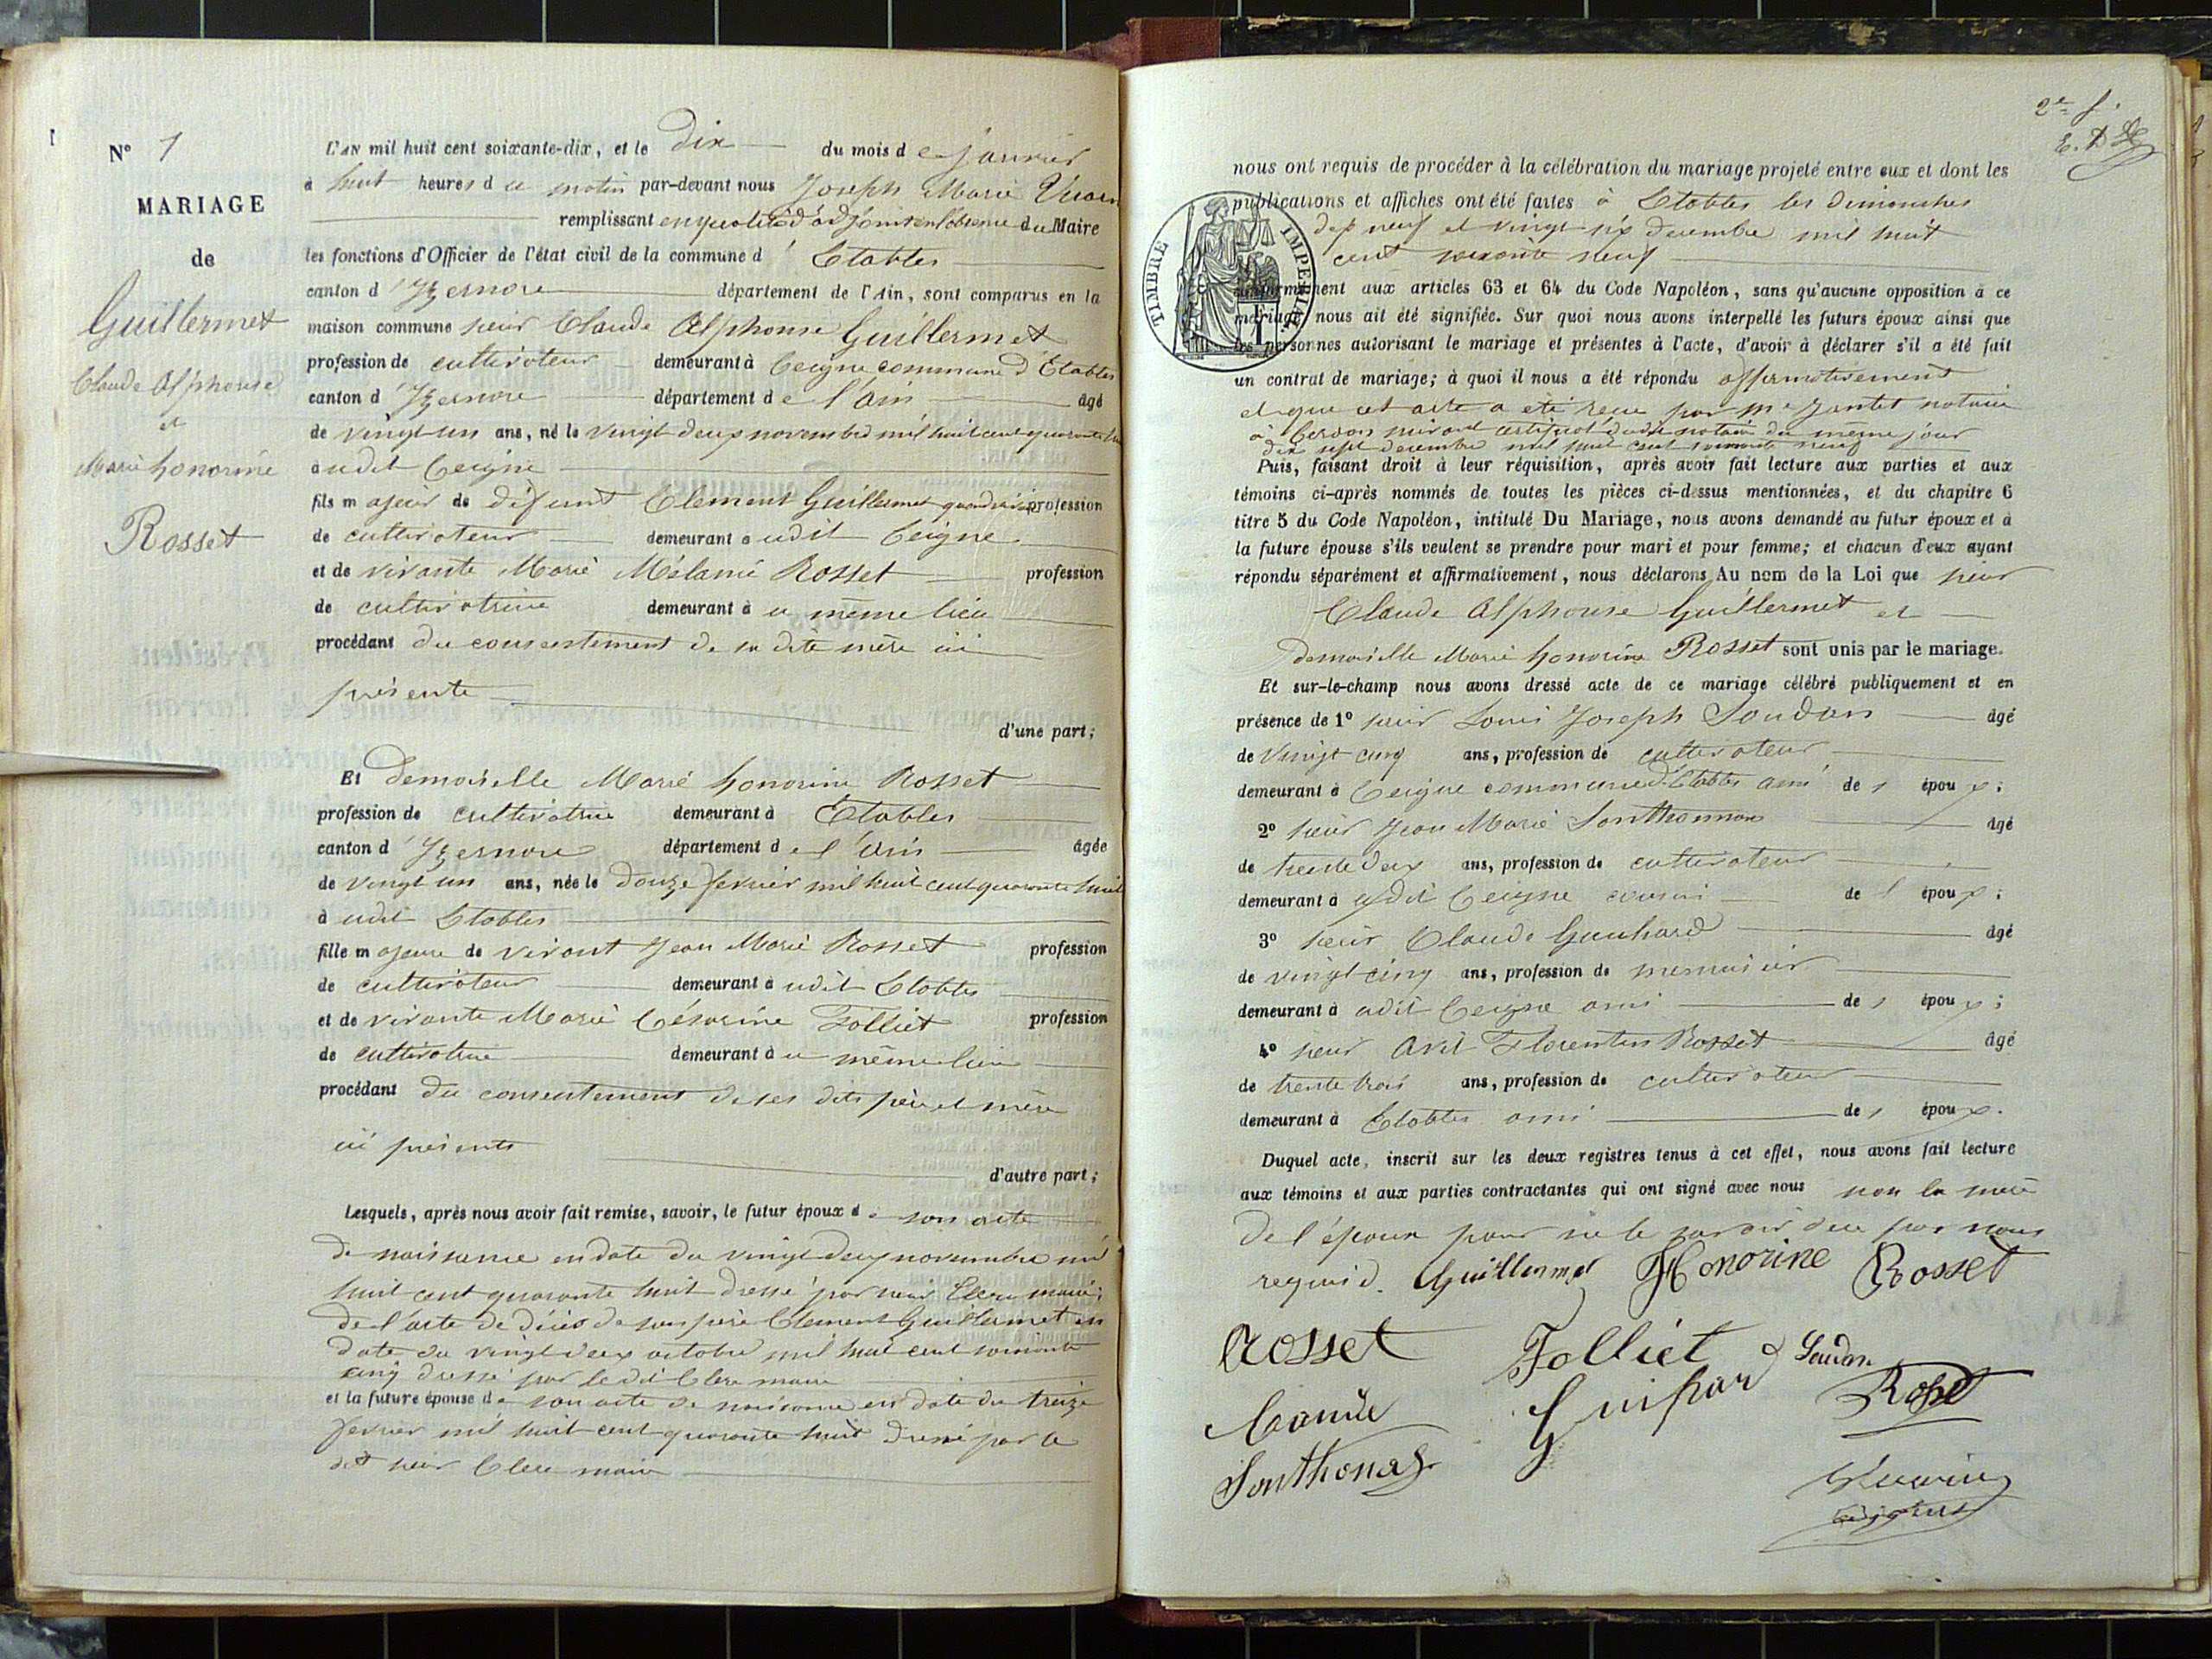 N° 1
MARIAGE
de
Guillermet
Claude Alphonse
et
Marie honorine
Rosset
L'AN mil huit cent soixante-dix, et le dix du mois de janvier
à huit heures du matin par-devant nous Joseph Marie
remplissant en qualité d'adjoint en l'absence du Maire
les fonctions d'Officier de l'état civil de la commune d'Etables
canton d'Yzernore département de l'Ain, sont comparus en la
maison commune sieur Claude Alphonse Guillermet
profession de cultivateur demeurant à Ceigne commune d'Etables
canton d'Yzernore département de l'ain âgé
de vingt un ans, né le vingt deux novembre mil huit cent quarante huit
audit Ceigne
fils majeur de défunt Clement Guillermet quand vivait profession
de cultivateur demeurant audit Ceigne
et de vivante Marie Mélanie Rosset profession
de cultivatrice demeurant au même lieu
procédant du consentement de sa dite mère ici
présente
d'une part;
Et demoiselle Marie honorine Rosset
profession de cultivatrice demeurant à Etables
canton d'Yzernore département de l'ain âgée
de vingt un ans, née le douze fevrier mil huit cent quarante huit
audit Etables
fille majeure de vivant Jean Marie Rosset profession
de cultivateur demeurant audit Etables
et de vivante Marie Césarine Folliet profession
de cultivatrice demeurant au même lieu
procédant du consentement de ses dits père et mère
ici présents
d'autre part;
Lesquels, après nous avoir fait remise, savoir, le futur époux de son acte
de naissance en date du vingt deux novembre mil
huit cent quarante huit dressé par sieur Clerc maire;
de l'acte de décès de son père Clement Guillermet en
date du vingt deux octobre mil huit cent soixante
cinq dressé par le dit Clerc maire
et la future épouse de son acte de naissance en date du treize
fevrier mil huit cent quarante huit dressé par le
dit sieur Clerc maire
2e f.
nous ont requis de procéder à la célébration du mariage projeté entre eux et dont les
publications et affiches ont été faites à Etables les dimanches
dix neuf et vingt six decembre mil huit
cent soixante neuf
TIMBRE IMPERIAL
conformément aux articles 63 et 64 du Code Napoléon, sans qu'aucune opposition à ce
mariage nous ait été signifiée. Sur quoi nous avons interpellé les futurs époux ainsi que
les personnes autorisant le mariage et présentes à l'acte, d'avoir à déclarer s'il a été fait
un contrat de mariage; à quoi il nous a été répondu affirmativement
et que cet acte a été recu par me Jantet notaire
à Cerdon suivant certificat dudit notaire du même jour
dix sept decembre mil huit cent soixante neuf
Puis, faisant droit à leur réquisition, après avoir fait lecture aux parties et aux
témoins ci-après nommés de toutes les pièces ci-dessus mentionnées, et du chapitre 6
titre 5 du Code Napoléon, intitulé Du Mariage, nous avons demandé au futur époux et à
la future épouse s'ils veulent se prendre pour mari et pour femme; et chacun d'eux ayant
répondu séparément et affirmativement, nous déclarons Au nom de la Loi que sieur
Claude Alphonse Guillermet et
demoiselle Marie honorine Rosset sont unis par le mariage.
Et sur-le-champ nous avons dressé acte de ce mariage célébré publiquement et en
présence de 1° sieur Louis Joseph Soudan âgé
de vingt cinq ans, profession de cultivateur
demeurant à Ceigne commune d'Etables ami des époux;
2° sieur Jean Marie Sonthonnax âgé
de trente deux ans, profession de cultivateur
demeurant audit Ceigne cousin de l'époux;
3° sieur Claude Guichard âgé
de vingt cinq ans, profession de menuisier
demeurant audit Ceigne ami des époux;
4° sieur Avit Florentin Rosset âgé
de trente trois ans, profession de cultivateur
demeurant à Etables ami des époux.
Duquel acte, inscrit sur les deux registres tenus à cet effet, nous avons fait lecture
aux témoins et aux parties contractantes qui ont signé avec nous non la mère
de l'époux pour ne le savoir de ce par nous
requis. Guillermet Honorine Rosset
Rosset Folliet Soudan
Rosset
Sonthonax